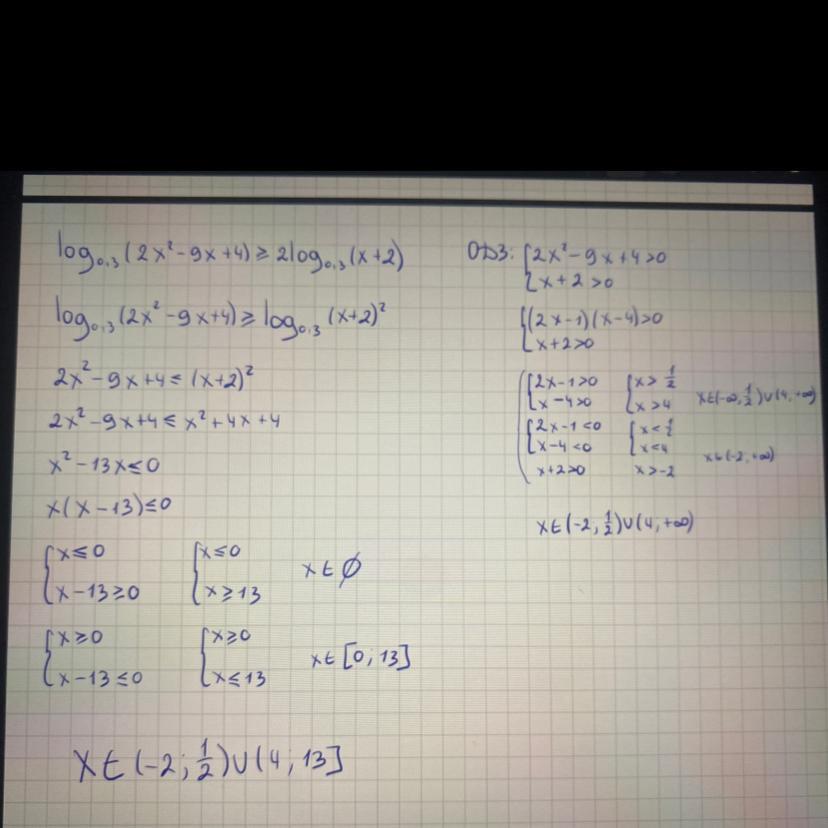 log₀,₃(2x²-9x+4)≥2log₀,₃(x+2)
log₀,₃(2x²-9x+4)≥log₀,₃(x+2)²
2x²-9x+4≤(x+2)²
2x²-9x+4≤x²+4x+4
x²-13x≤0
x(x-13)≤0
{x≤0 {x≤0
x-13≥0 x≥13 x∈∅
{x≥0 {x≥0
x-13≤0 x≤13 x∈[0;13]
x∈(-2;1/2)∪(4;13]
ОДЗ: {2x²-9x+4>0
x+2>0
{(2x-1)(x-4)>0
x+2>0
{2x-1>0 {x>1/2
x-4>0 x>4 x∈(-∞,1/2)∪(4,+∞)
{2x-1<0 {x<1/2
x-4<0 x<4
x+2>0 x>-2 x∈(-2,+∞)
x∈(-2;1/2)∪(4;+∞)